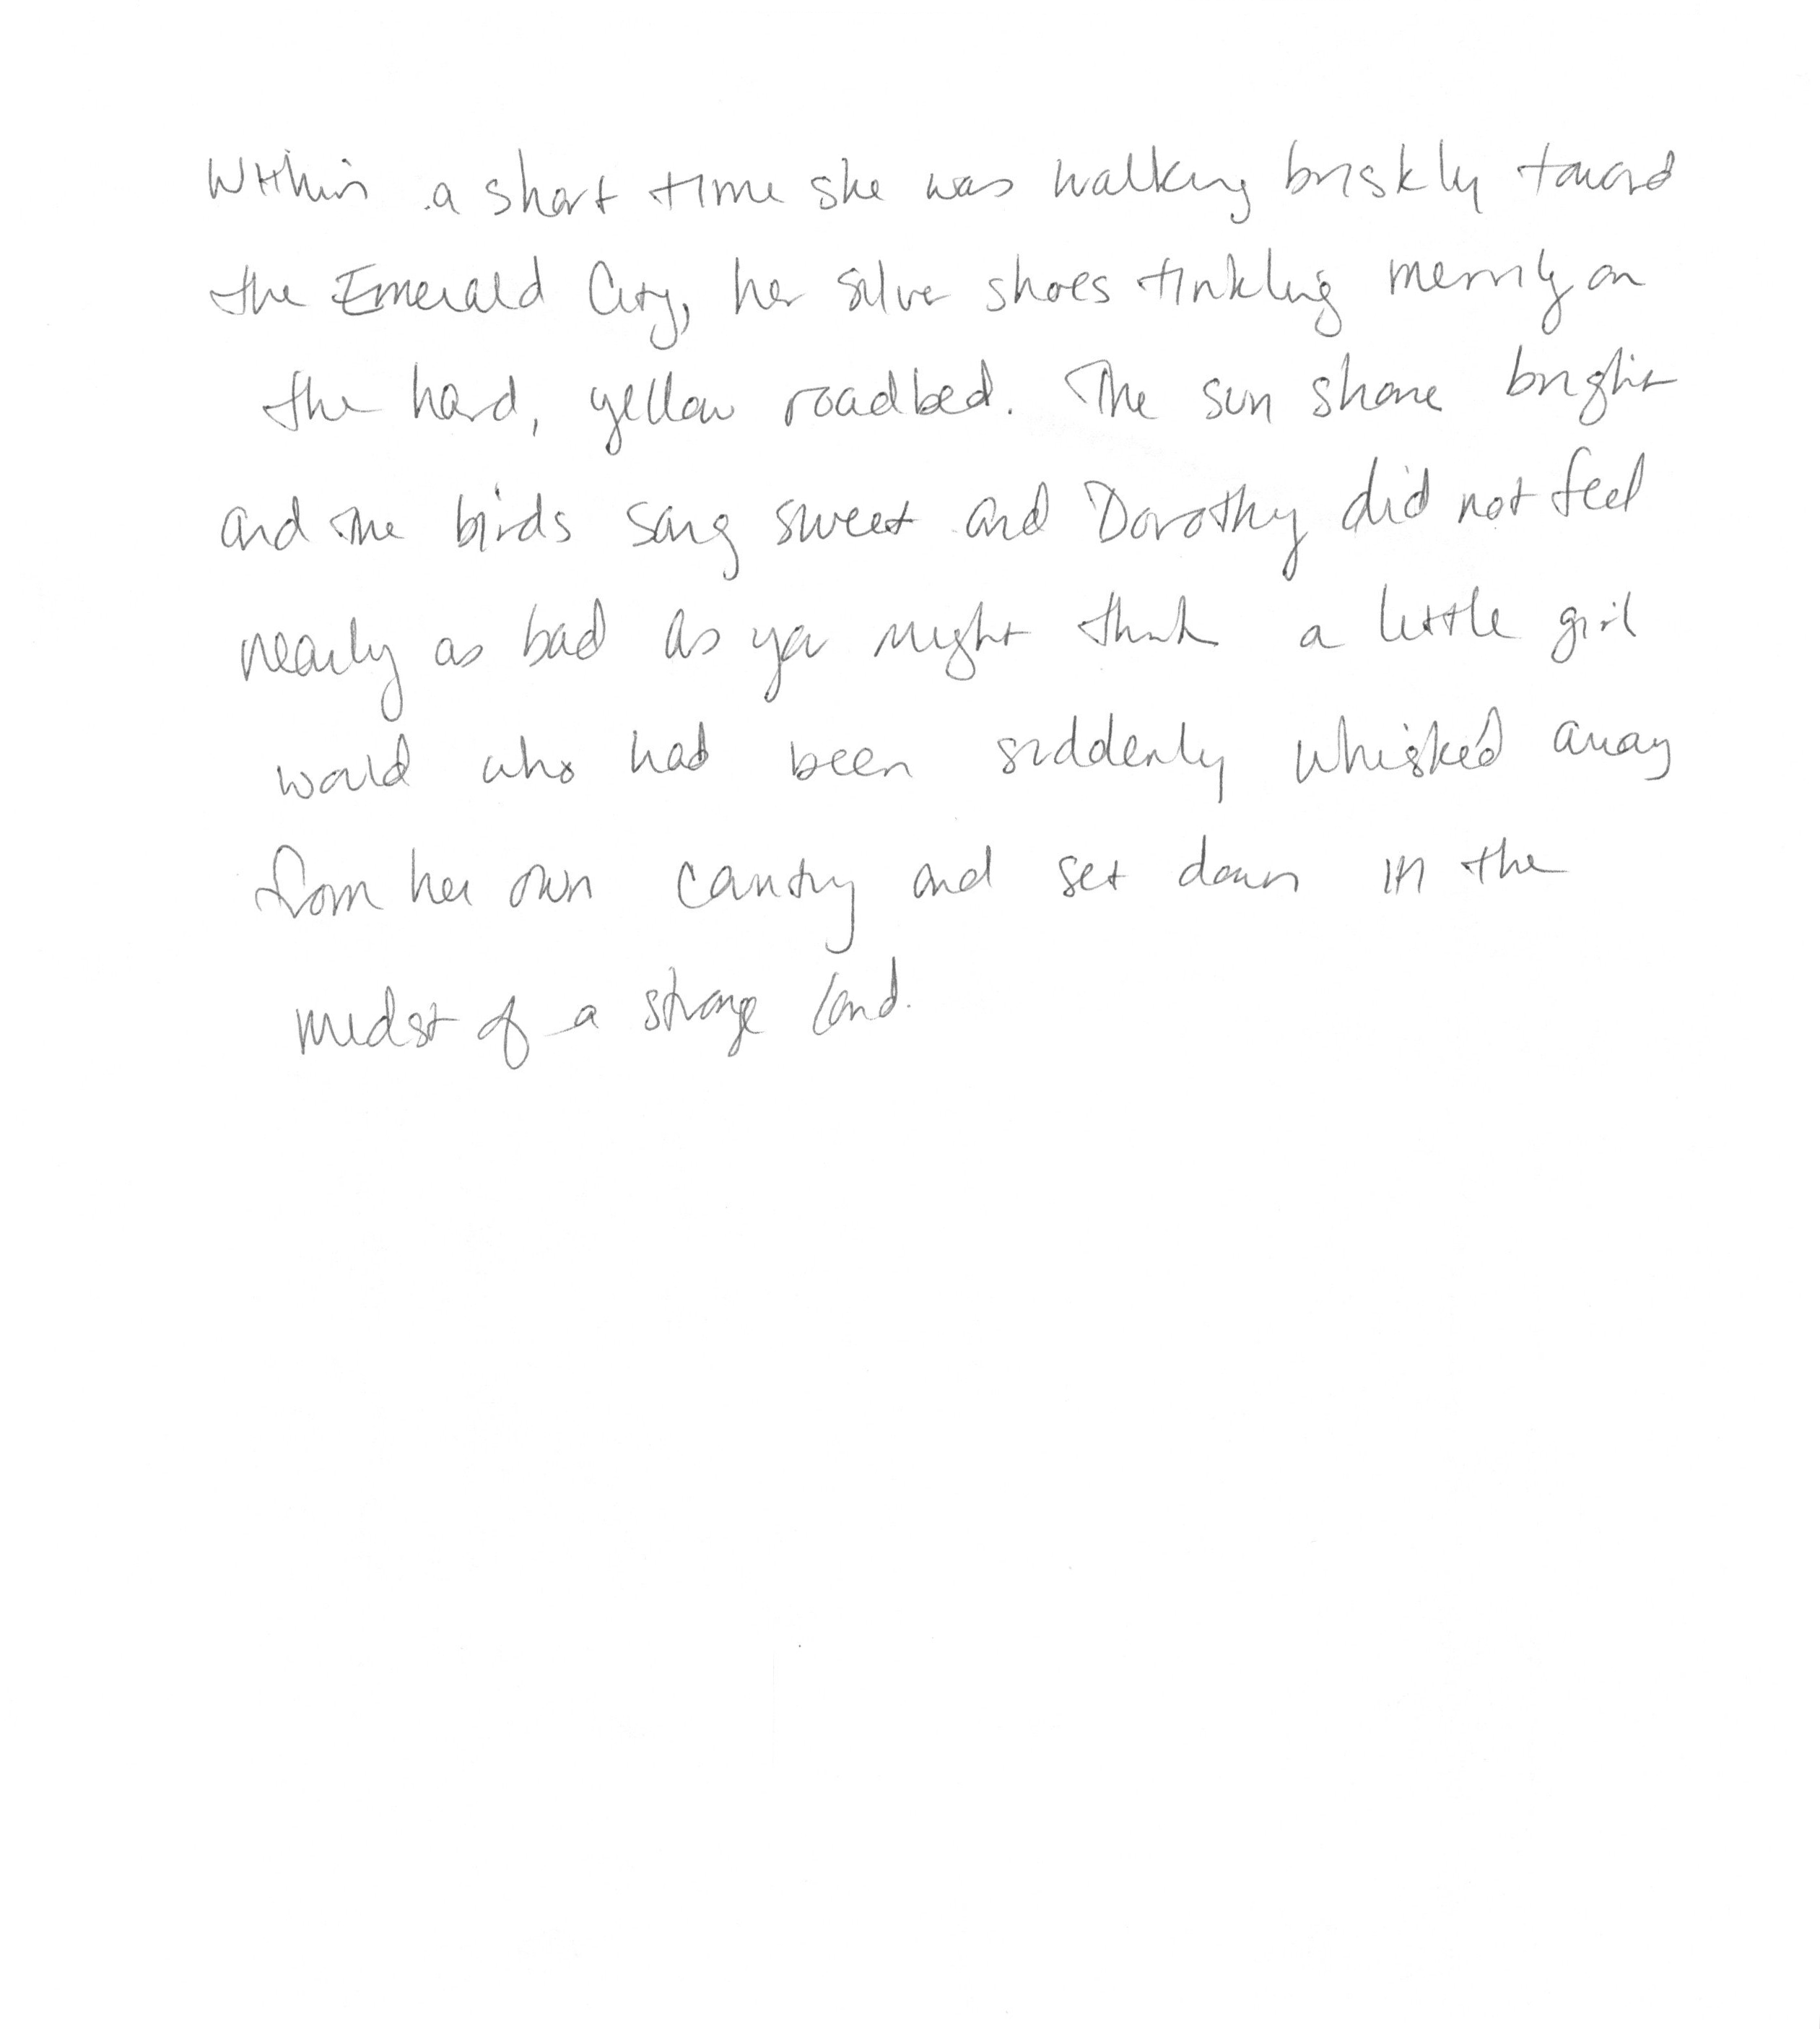 Within a short time she was walking briskly toward
the Emerald City, her silver shoes tinkling merrily on
the hard, yellow roadbed. The sun shone bright
and the birds sang sweet and Dorothy did not feel
nearly as bad as you might think a little girl
would who had been suddenly whisked away
from her own country and set down in the
midst of a strange land.